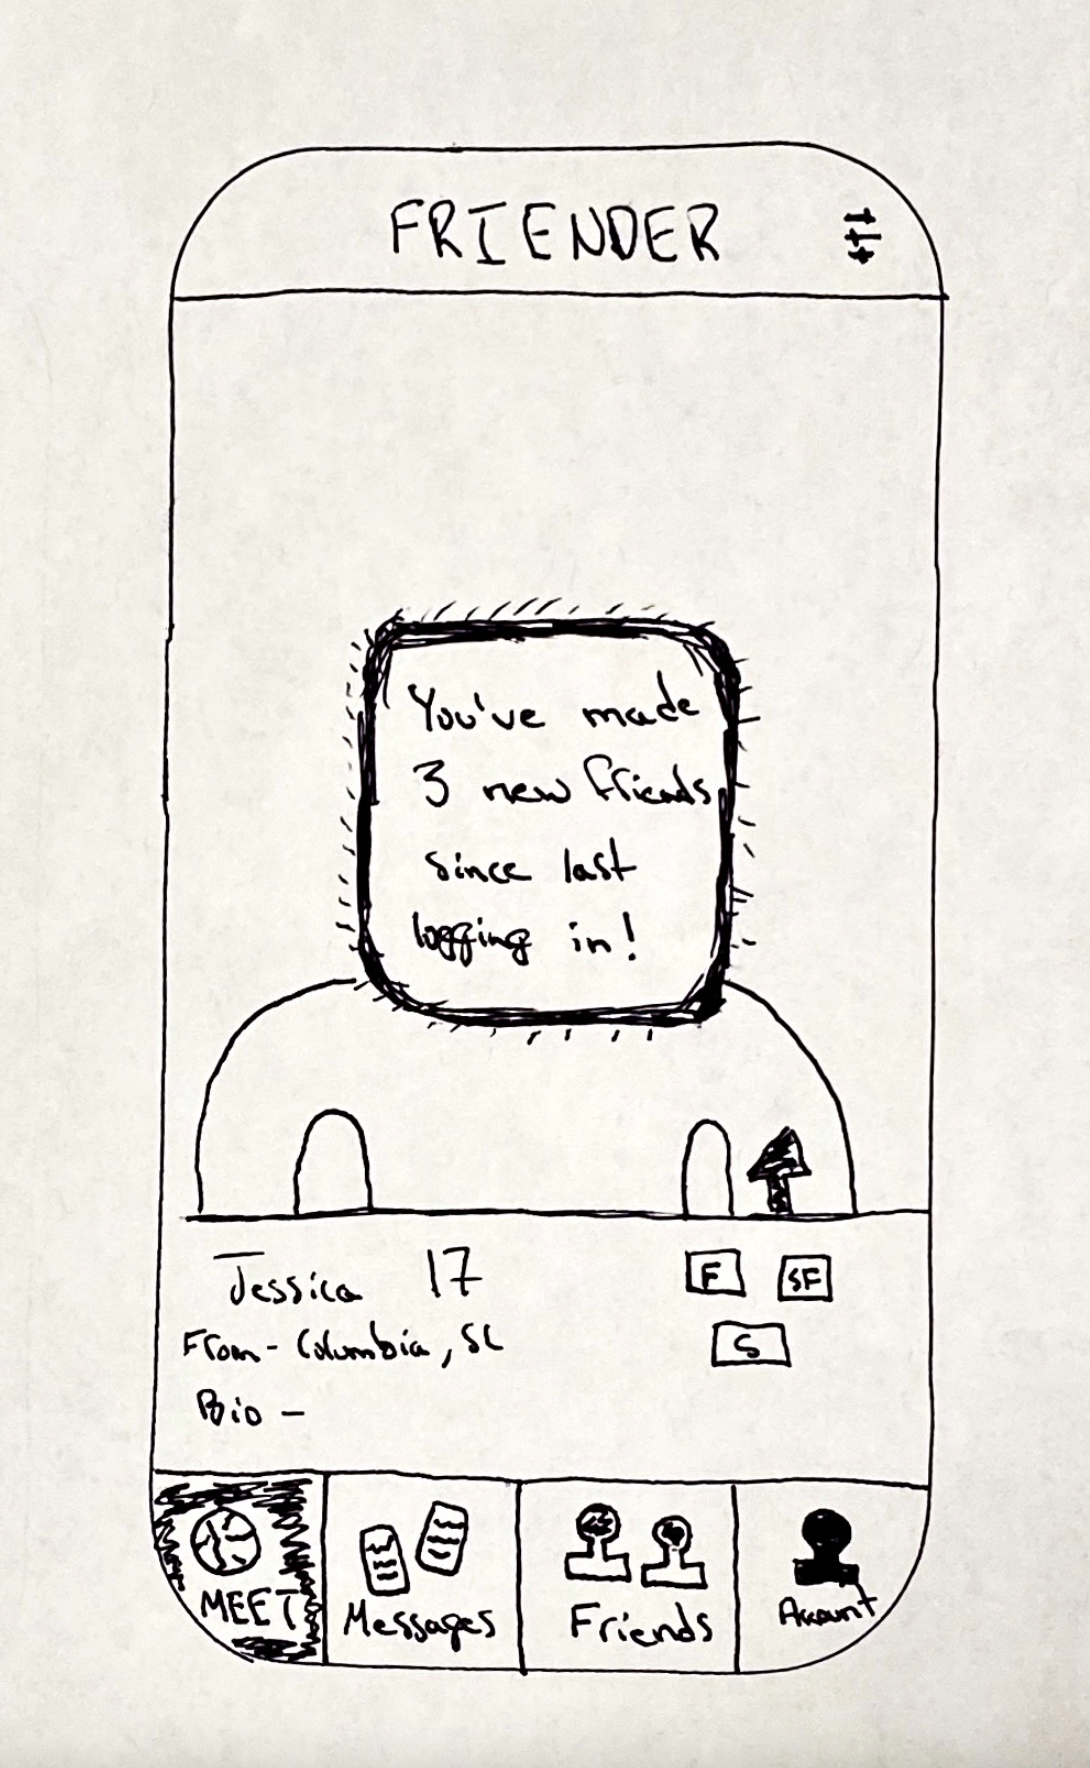 FRIENDER
You've made
3 new friends
since last
logging in!
Jessica 17
F SF
From - Columbia, SC
S
Bio -
MEET
Messages
Friends
Account